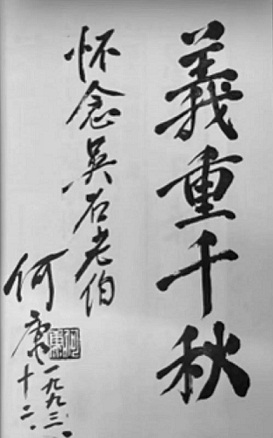 義重千秋
怀念吴石老伯
何康
一九九三.
十二.